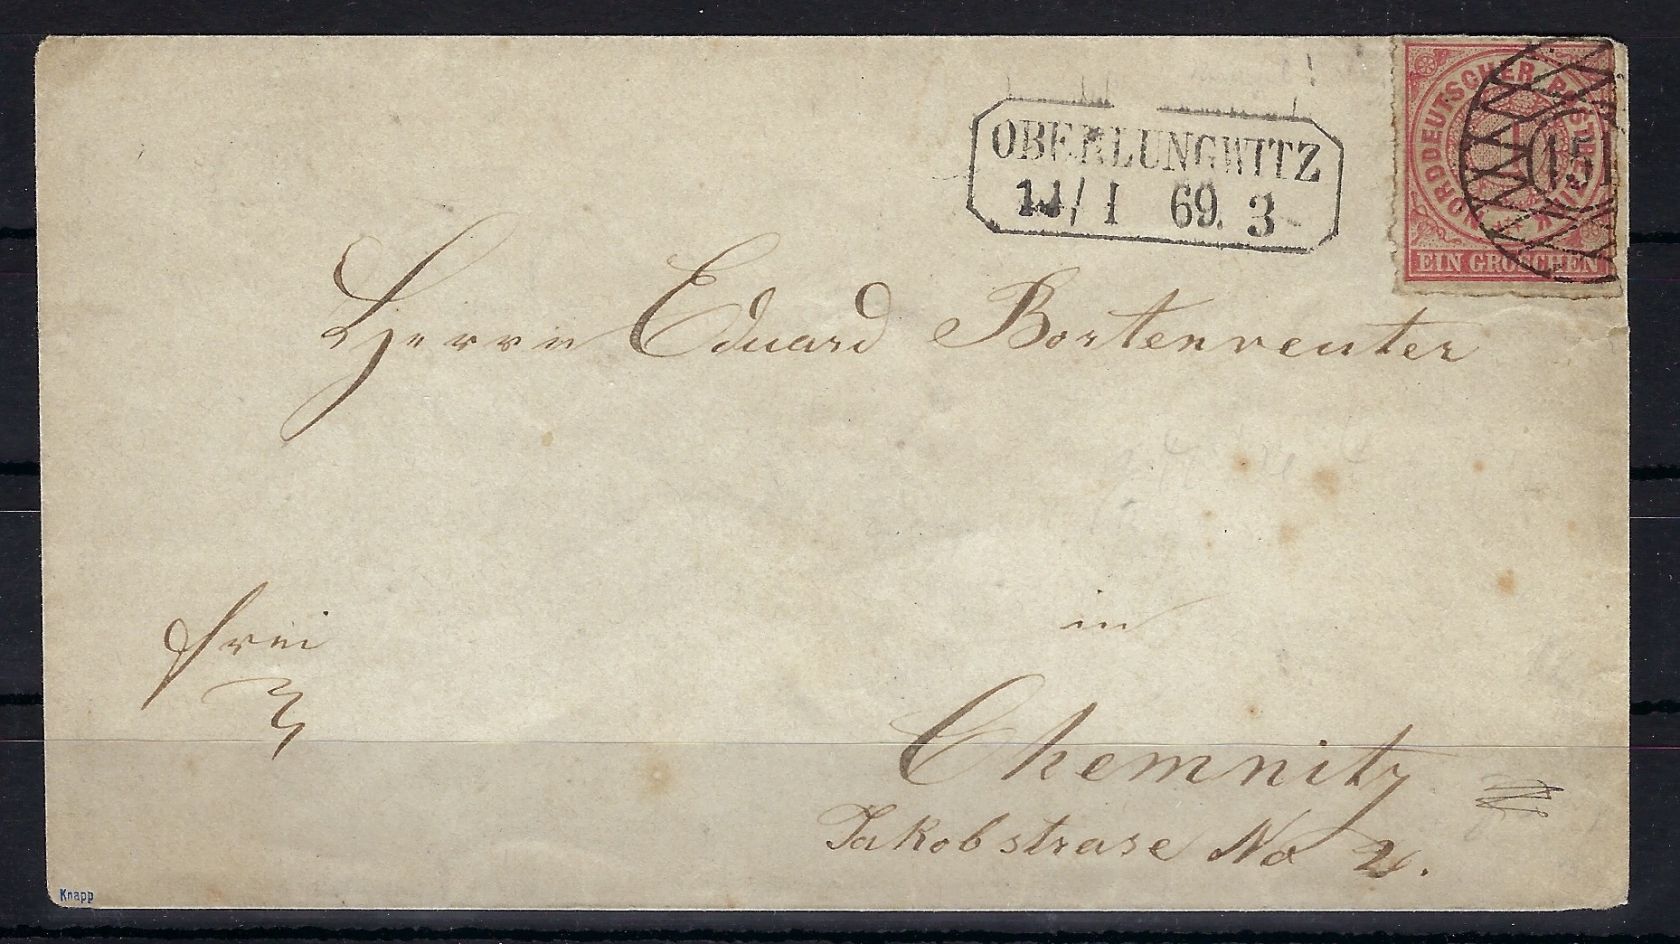 OBERLUNGWITZ
14/ I 69. 3
NORDDEUTSCHER POSTBEZIRK
1
151
EIN GROSCHEN
Herrn Eduard Bortenreuter
frei
in
Chemnitz
Jakobstrase No 2.
Knapp